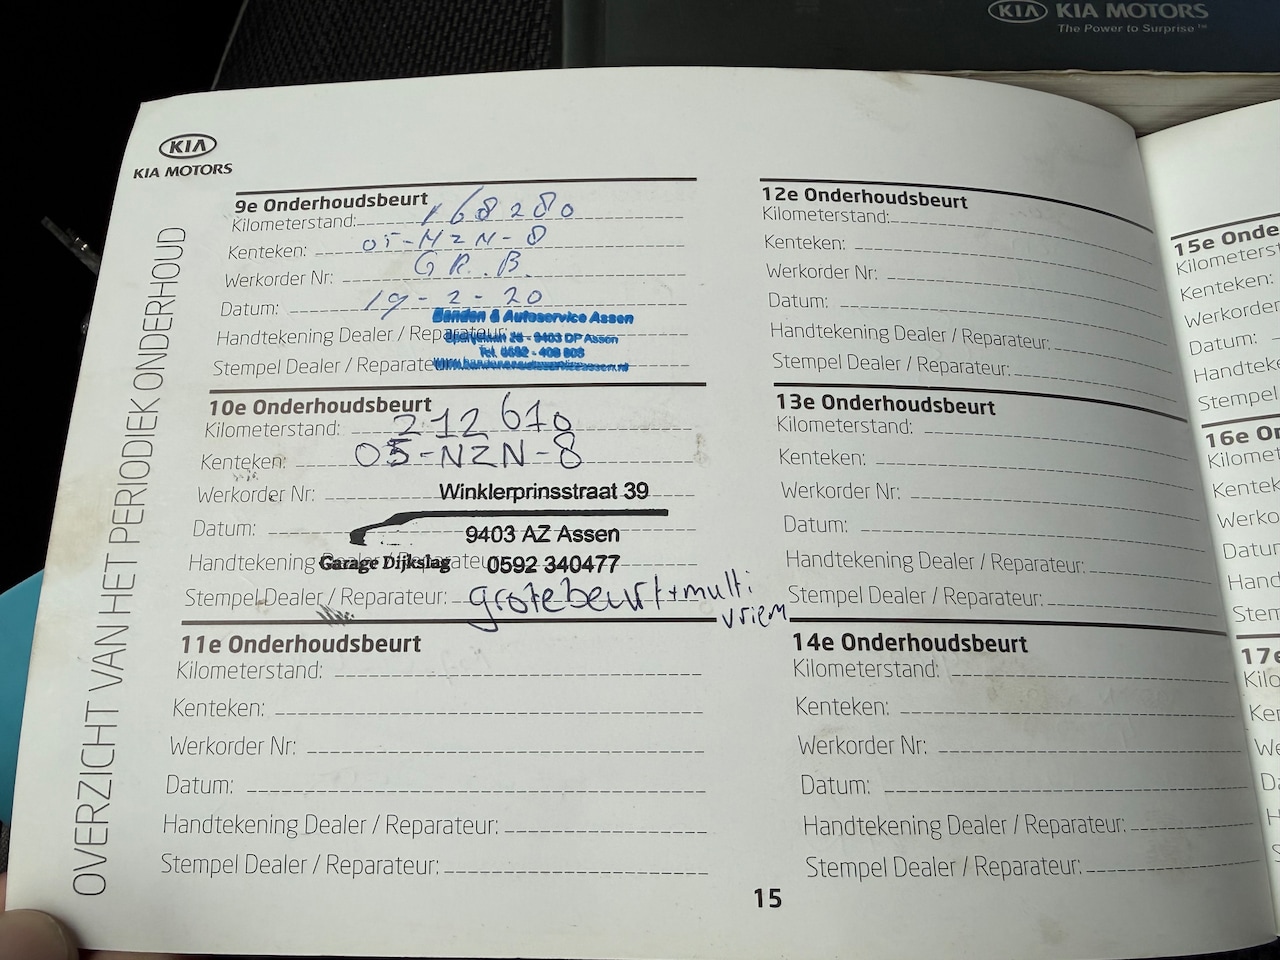 KIA KIA MOTORS
The Power to Surprise™
KIA
KIA MOTORS
OVERZICHT VAN HET PERIODIEK ONDERHOUD
9e Onderhoudsbeurt
Kilometerstand: 168280
Kenteken: 05-NZN-8
Werkorder Nr: GR.B.
Datum: 19-2-20
Banden & Autoservice Assen
Handtekening Dealer / Reparateur:
28 - 9403 DP Assen
Tel. 0592 - 408 808
Stempel Dealer / Reparateur:
10e Onderhoudsbeurt
Kilometerstand: 212610
Kenteken: 05-NZN-8
Werkorder Nr: Winklerprinsstraat 39
Datum: 9403 AZ Assen
Handtekening Dealer / Reparateur:
Garage Dijkslag 0592 340477
Stempel Dealer / Reparateur: grote beurt + multi
vriem
11e Onderhoudsbeurt
Kilometerstand:
Kenteken:
Werkorder Nr:
Datum:
Handtekening Dealer / Reparateur:
Stempel Dealer / Reparateur:
12e Onderhoudsbeurt
Kilometerstand:
Kenteken:
Werkorder Nr:
Datum:
Handtekening Dealer / Reparateur:
Stempel Dealer / Reparateur:
13e Onderhoudsbeurt
Kilometerstand:
Kenteken:
Werkorder Nr:
Datum:
Handtekening Dealer / Reparateur:
Stempel Dealer / Reparateur:
14e Onderhoudsbeurt
Kilometerstand:
Kenteken:
Werkorder Nr:
Datum:
Handtekening Dealer / Reparateur:
Stempel Dealer / Reparateur:
15
15e Onde
Kilometerst
Kenteken:
Werkorder
Datum:
Handteke
Stempel
16e On
Kilomet
Kentek
Werko
Datum
Hand
Stem
17e
Kilo
Ker
We
Da
H
S